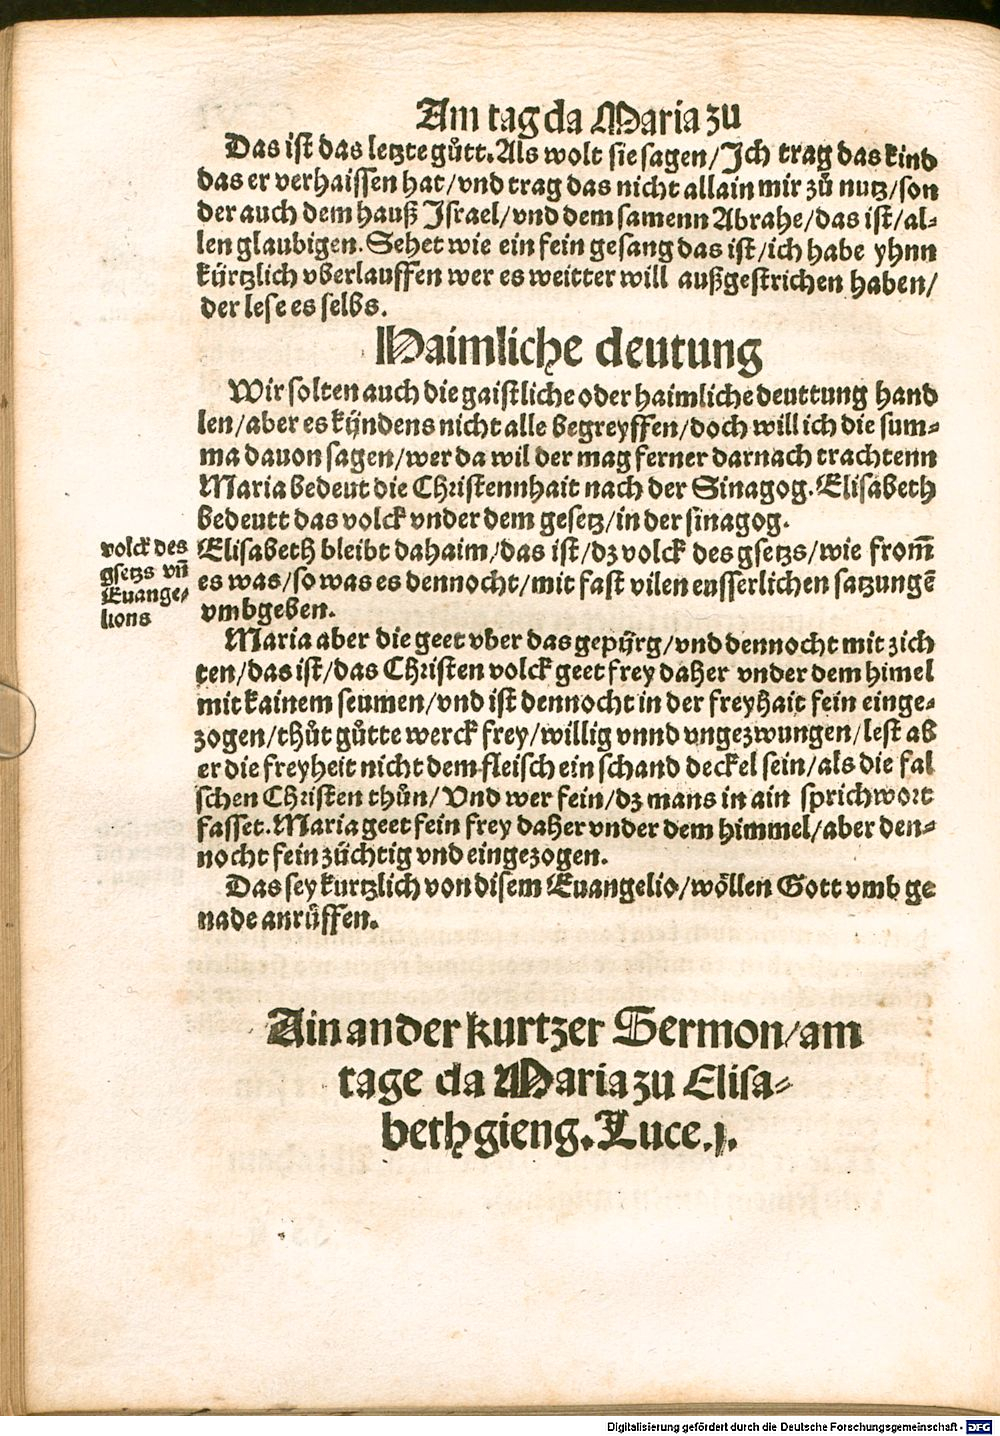 Am tag da Maria zu
Das ist das letzte gůtt. Als wolt sie sagen/ Jch trag das kind
das er verhaissen hat/ vnd trag das nicht allain mir zů nutz/ son
der auch dem hauß Jsrael/ vnd dem samenn Abrahe/ das ist/ al-
len glaubigen. Sehet wie ein fein gesang das ist/ ich habe yhnn
kürtzlich vberlauffen wer es weitter will außgestrichen haben/
der lese es selbs.
Haimliche deutung
Wir solten auch die gaistliche oder haimliche deuttung hand
len/ aber es kijndens nicht alle begreyffen/ doch will ich die sum-
ma dauon sagen/ wer da wil der mag ferner darnach trachtenn
Maria bedeut die Christennhait nach der Sinagog. Elisabeth
bedeutt das volck vnder dem gesetz/ in der sinagog.
volck des
gsetzs vñ
Euange-
lions
Elisabeth bleibt dahaim/ das ist/ dz volck des gsetzs/ wie from̃
es was/ so was es dennocht/ mit fast vilen eusserlichen satzungẽ
vmbgeben.
Maria aber die geet vber das gepijrg/ vnd dennocht mit zich
ten/ das ist/ das Christen volck geet frey daher vnder dem himel
mit kainem seumen/ vnd ist dennocht in der freyhait fein einge-
zogen/ thůt gůtte werck frey/ willig vnnd vngezwungen/ lest ab
er die freyheit nicht dem fleisch ein schand deckel sein/ als die fal
schen Christen thůn/ Vnd wer fein/ dz mans in ain sprichwort
fasset. Maria geet fein frey daher vnder dem himmel/ aber den-
nocht fein züchtig vnd eingezogen.
Das sey kurtzlich von disem Euangelio/ wöllen Gott vmb ge
nade anrüffen.
Ain ander kurtzer Sermon/ am
tage da Maria zu Elisa-
beth gieng. Luce. j.
Digitalisierung gefördert durch die Deutsche Forschungsgemeinschaft - DFG